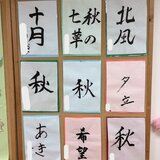 北風
秋の
七草
十月
夕立
秋
秋
秋
希望
あき